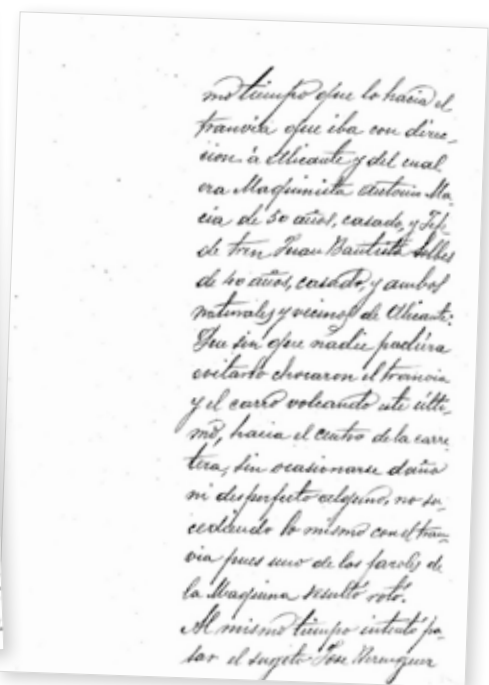 mo tiempo que lo hacia el
tranvia que iba con direc-
cion á Alicante y del cual
era Maquinista Antonio Ma-
cia de 50 años, casado, y Jefe
de tren Juan Bautista Selles
de 40 años, casado, y ambos
naturales y vecinos de Alicante:
Que sin que nadie pudiera
evitarlo chocaron el tranvia
y el carro volcando este últi-
mo, hacia el centro de la carre
tera, sin ocasionarse daño
ni desperfecto alguno, no su-
cediendo lo mismo con el tran-
via pues uno de los faroles de
la Maquina resultó roto.
Al mismo tiempo intentó pa-
sar el sugeto Jose Berenguer